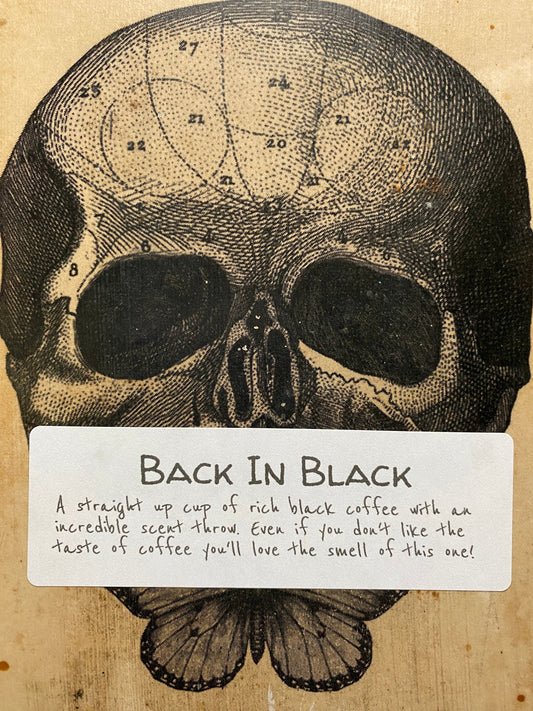 27
24
28
21
21
22
20
21
21
7
6
4
6
8
Back In Black
A straight up cup of rich black coffee with an
incredible scent throw. Even if you don't like the
taste of coffee you'll love the smell of this one!